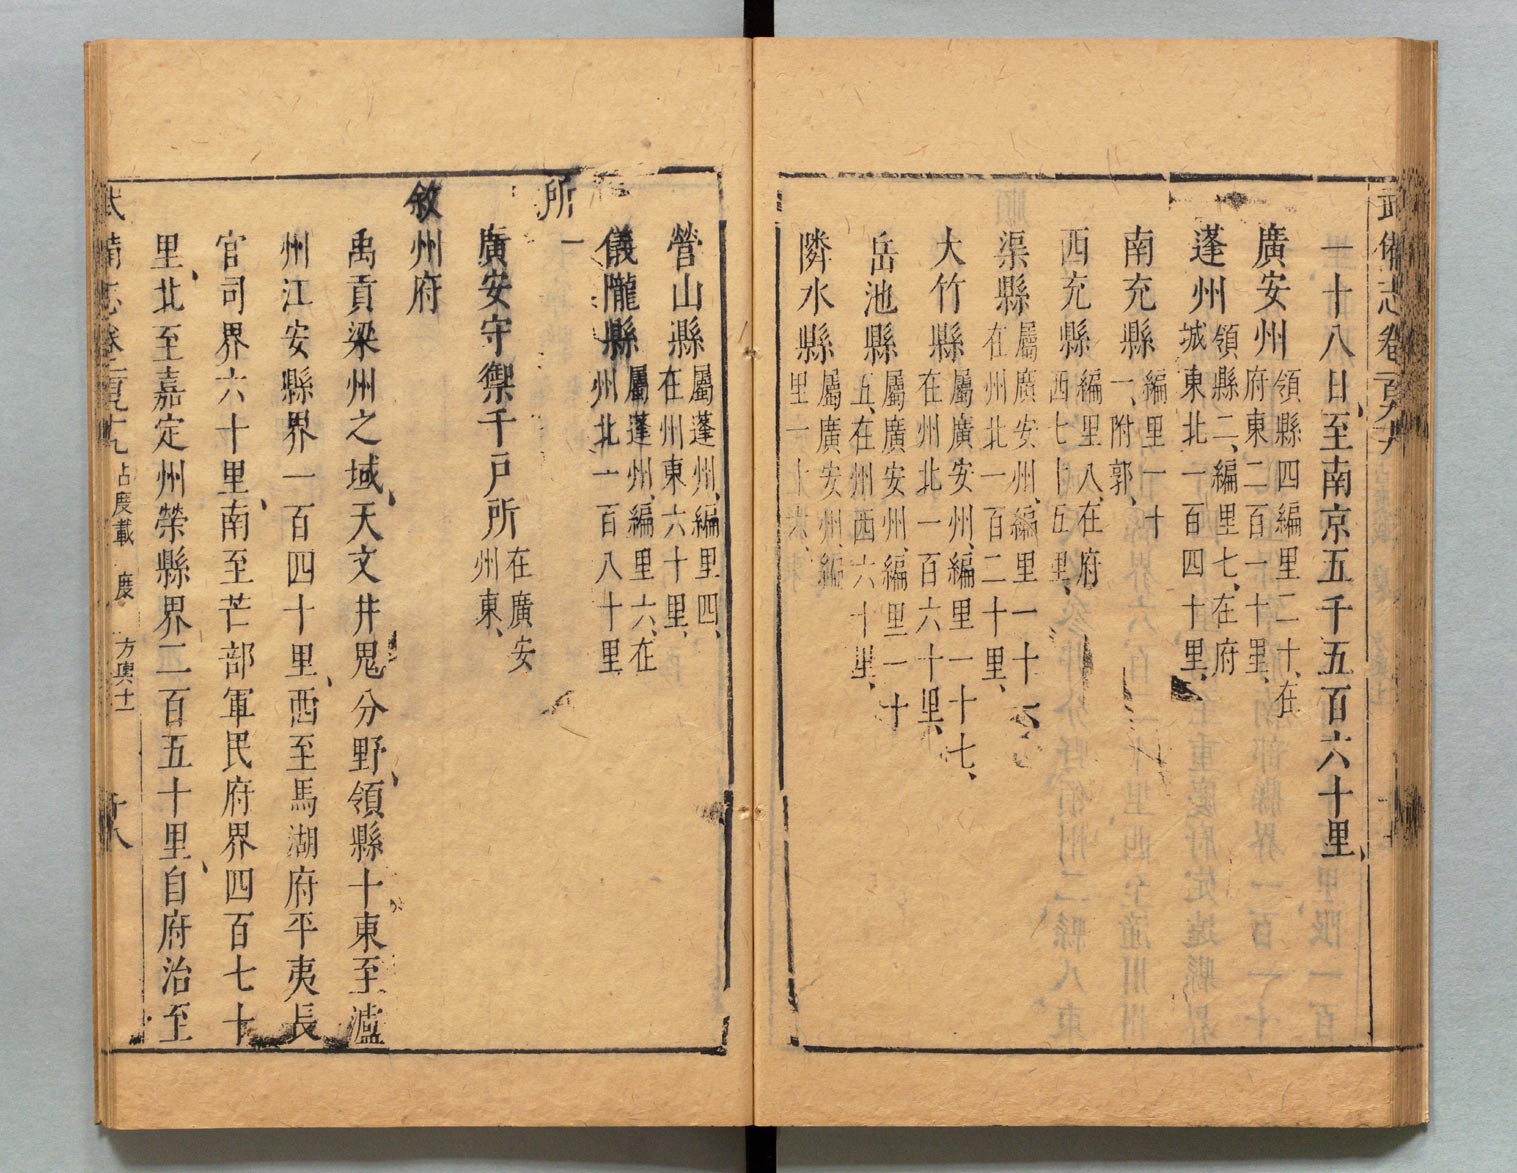 武備志卷一百九十九
一十八日至南京五千五百六十里
廣安州 領縣四編里二十在
府東二百一十里
蓬州 領縣二編里七在府
城東北一百四十里
南充縣 編里一十
一附郭
西充縣 編里八在府
西七十五里
渠縣 屬廣安州編里一十
在州北一百二十里
大竹縣 屬廣安州編里一十七
在州北一百六十里
岳池縣 屬廣安州編里一十
五在州西六十里
隣水縣 屬廣安州編
里一十
營山縣 屬蓬州編里四
在州東六十里
儀隴縣 屬蓬州編里六在
州北一百八十里
所一
廣安守禦千戶所 在廣安
州東
敘州府
禹貢梁州之域天文井鬼分野領縣十東至瀘
州江安縣界一百四十里西至馬湖府平夷長
官司界六十里南至芒部軍民府界四百七十
里北至嘉定州榮縣界二百五十里自府治至
武備志卷一百九十九 占度載 度 方輿十一 十八